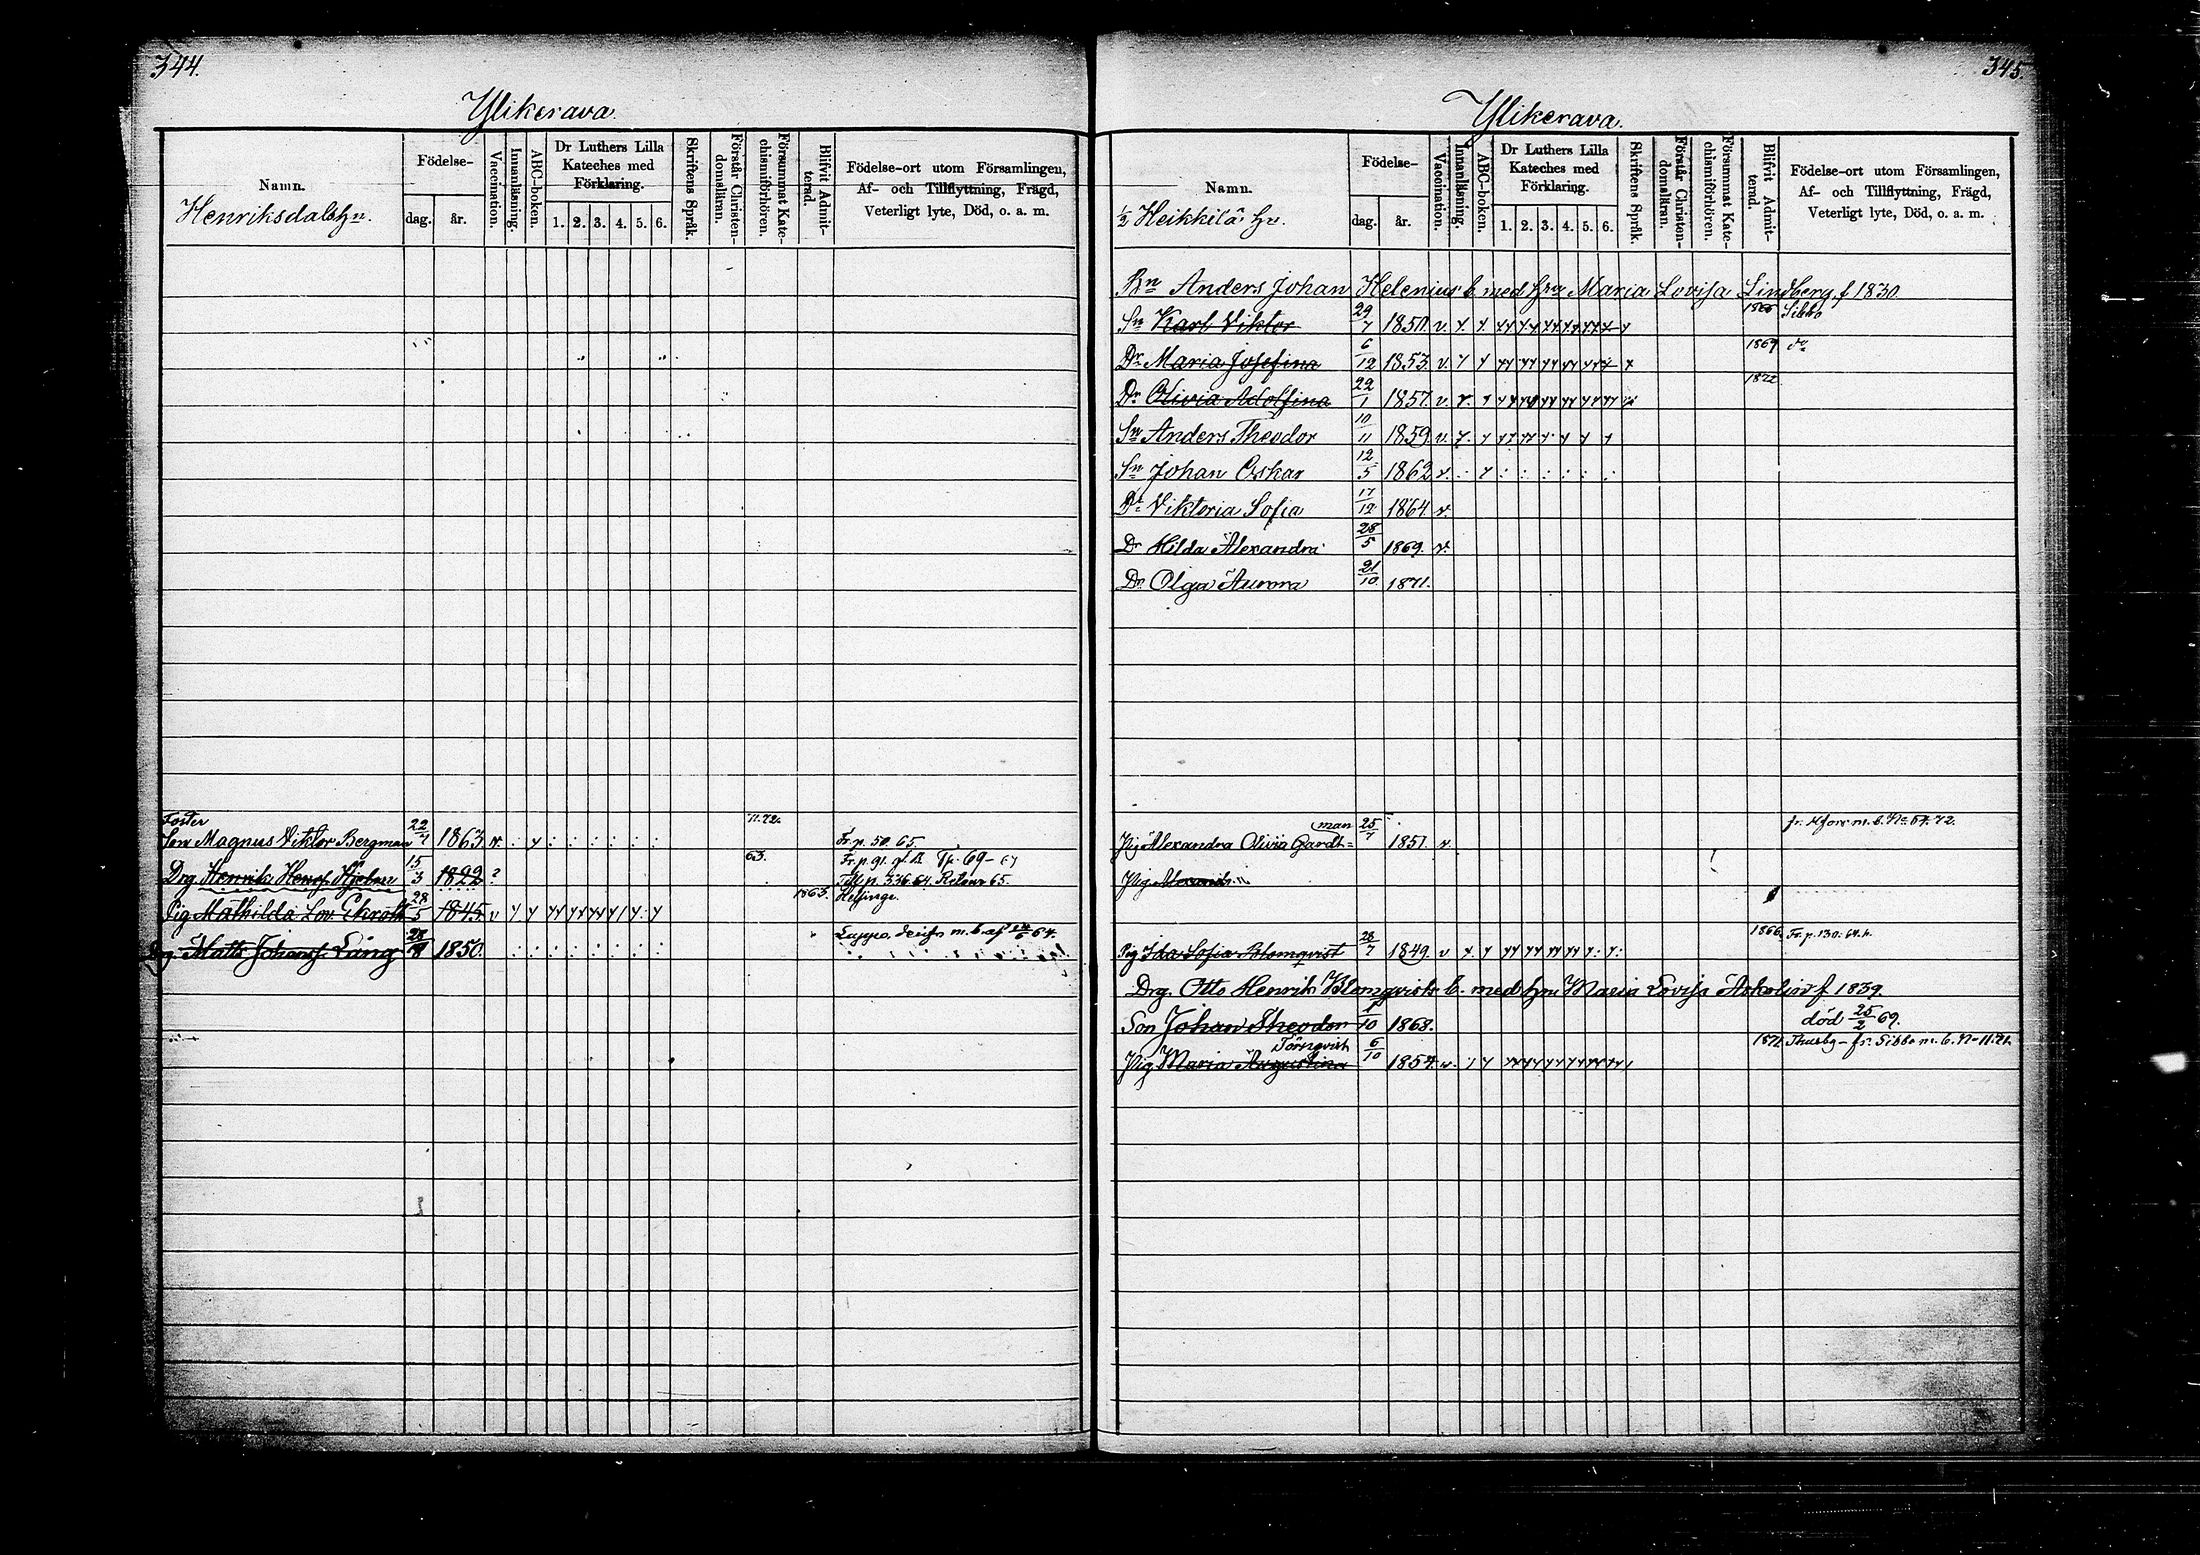 344.
Ylikerava.
Namn.
Henriksdals hn.
Födelse-
dag.
år.
Vaccination.
Innanläsning.
ABC-boken.
Dr Luthers Lilla
Kateches med
Förklaring.
1. 2. 3. 4. 5. 6.
Skriftens Språk.
Förstår Christen-
domsläran.
Försummat Kate-
chismiförhören.
Blifvit Admit-
terad.
Födelse-ort utom Församlingen,
Af- och Tillflyttning, Frägd,
Veterligt lyte, Död, o. a. m.
Foster
Son Magnus Viktor Bergman 22/7 1863 v. Fr. p. 50. 65.
Drg Henrik Henrs. Hjelm 15/3 1822 ? 63. Fr. p. 91. gl. B. Tp. 69-67
Till p. 336. 64. Retour 65.
Pig Mathilda Lov. Ekroth 28/5 1845 v 1863. Helsinge.
Drg. Matts Johans. Lång 1850. Lappo, m. b. af 64.
345.
Ylikerava.
Namn.
1/2 Heikkilä hn.
Födelse-
dag.
år.
Vaccination.
Innanläsning.
ABC-boken.
Dr Luthers Lilla
Kateches med
Förklaring.
1. 2. 3. 4. 5. 6.
Skriftens Språk.
Förstår Christen-
domsläran.
Försummat Kate-
chismiförhören.
Blifvit Admit-
terad.
Födelse-ort utom Församlingen,
Af- och Tillflyttning, Frägd,
Veterligt lyte, Död, o. a. m.
Bn Anders Johan Helenius b. med hru Maria Lovisa Lindberg f 1830.
Sn Karl Viktor 29/7 1850. v. 1866 Sibbo
Dr Maria Josefina 6/12 1853. v. 1869 do
Dr Olivia Adolfina 22/1 1857. v. 1872
Sn Anders Theodor 10/11 1859. v.
Sn Johan Oskar 12/5 1862 v.
Dr Viktoria Sofia 17/12 1864 v.
Dr Hilda Alexandra 28/5 1869. v.
Dr Olga Aurora 21/10 1871.
Pig Alexandra Olivia Gardt=man 25/7 1851. v. m. b. No 64. 72.
Pig
Pig Ida Sofia Blomqvist 28/7 1849. v 1866. Fr. p. 130. 64.
Drg. Otto Henrik Blomqvists b. med hru Maria Lovisa f 1839.
Son Johan Theodor 1/10 1868. död 25/2 69.
Pig Maria Augustina Törnqvist 6/10 1854. v. 1871 Thusby - fr. Sibbo m. b. No 11. 71.